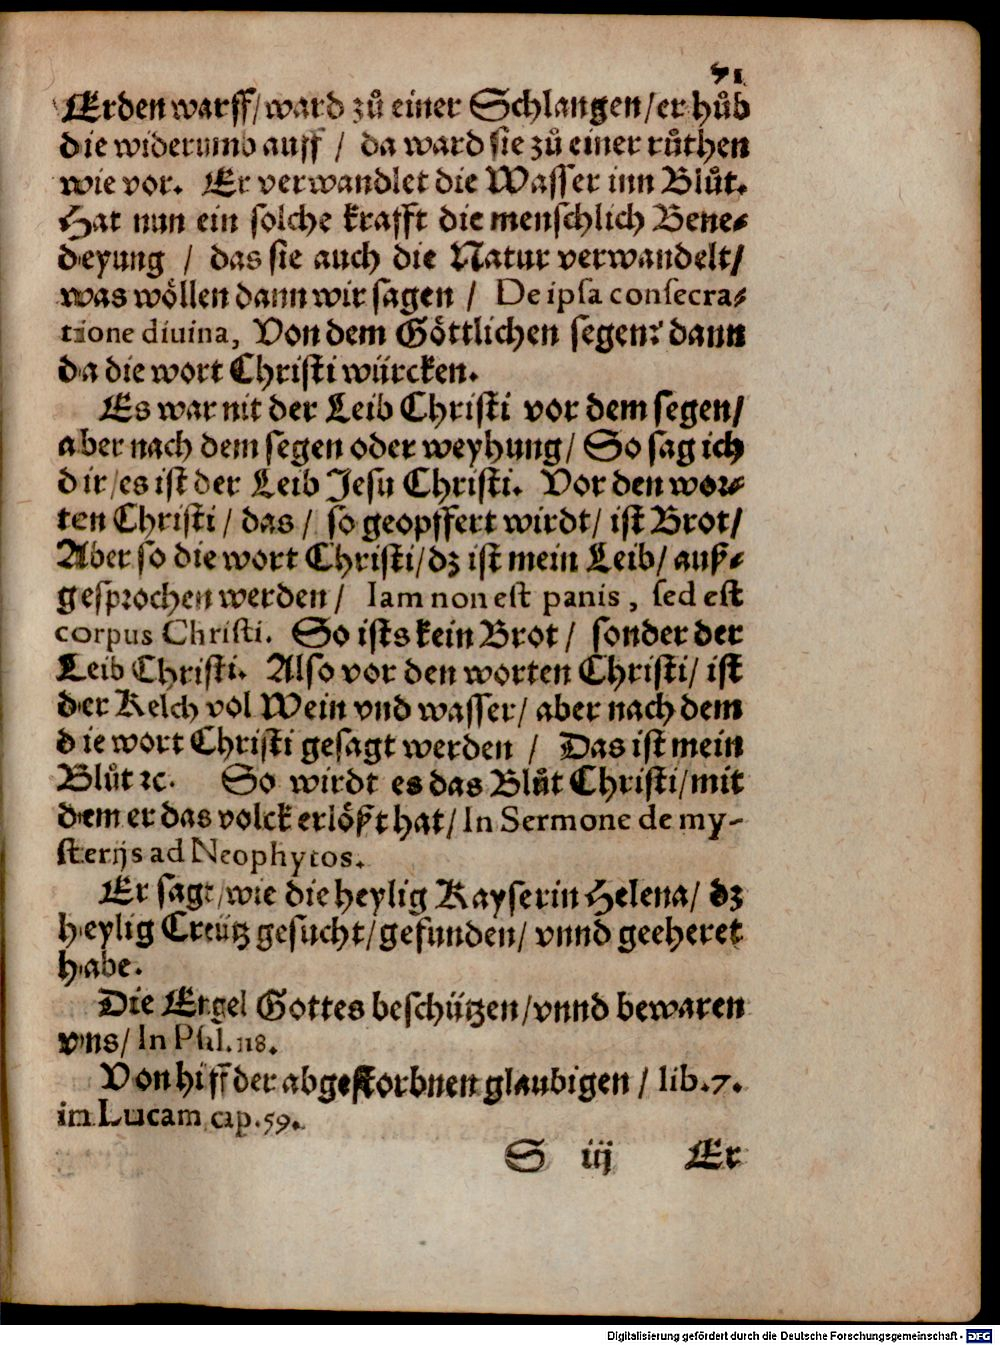 71
Erden warff/ward zů einer Schlangen/er hůb
die widerumb auff / da ward sie zů einer růthen
wie vor. Er verwandlet die Wasser inn Blůt.
Hat nun ein solche krafft die menschlich Bene-
deyung / das sie auch die Natur verwandelt/
was wöllen dann wir sagen / De ipsa consecra-
tione diuina, Von dem Göttlichen segen? dann
da die wort Christi würcken.
Es war nit der Leib Christi vor dem segen/
aber nach dem segen oder weyhung/ So sag ich
dir/es ist der Leib Jesu Christi. Vor den wor-
ten Christi / das / so geopffert wirdt/ ist Brot/
Aber so die wort Christi/dz ist mein Leib/ auß-
gesprochen werden / Iam non est panis, sed est
corpus Christi. So ists kein Brot / sonder der
Leib Christi. Also vor den worten Christi/ ist
der Kelch vol Wein vnd wasser/ aber nach dem
die wort Christi gesagt werden / Das ist mein
Blůt ꝛc. So wirdt es das Blůt Christi/mit
dem er das volck erlößt hat/ In Sermone de my-
sterijs ad Neophytos.
Er sagt/wie die heylig Kayserin Helena/ dz
heylig Creütz gesucht/gefunden/ vnnd geeheret
habe.
Die Engel Gottes beschützen/vnnd bewaren
vns/ In Psal. 118.
Von hilff der abgestorbnen glaubigen / lib. 7.
in Lucam cap. 59.
S iij Er
Digitalisierung gefördert durch die Deutsche Forschungsgemeinschaft - DFG